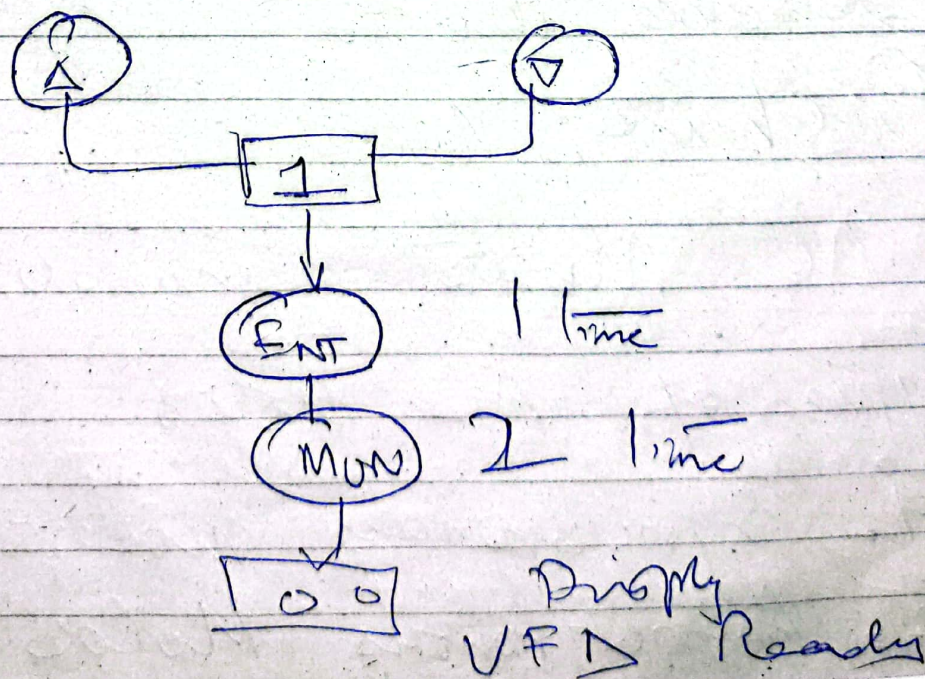 △ ▽
1
ENT 1 Time
MON 2 Time
00 Disply
VFD Ready